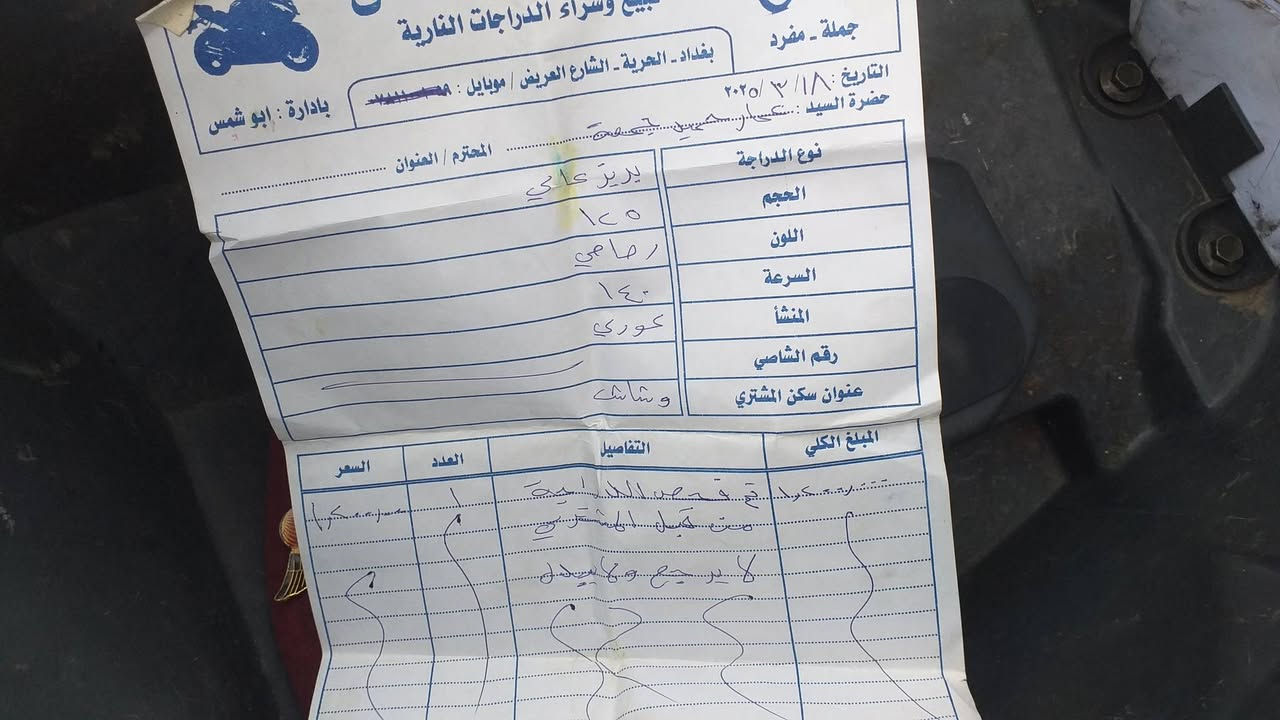 لبيع وشراء الدراجات النارية
جملة ـ مفرد
بغداد ـ الحرية ـ الشارع العريض / موبايل :
بادارة : ابو شمس
التاريخ : ١٨ / ٣ / ٢٠٢٥
حضرة السيد :
المحترم / العنوان
نوع الدراجة
الحجم ١٢٥
اللون رصاصي
السرعة ١٤٠
المنشأ كوري
رقم الشاصي
عنوان سكن المشتري وشاش
المبلغ الكلي التفاصيل العدد السعر
تم فحص الدراجة ١
من قبل المشتري
لا يرجع ولا يبدل